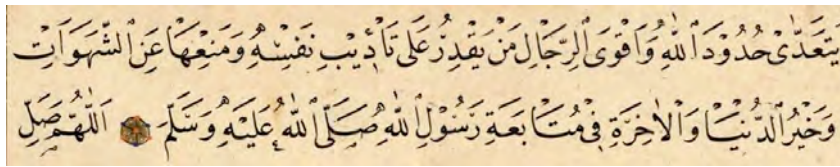 يَتَعَدّٰى حُدُودَ اللّٰهِ وَاَقْوَى الرِّجَالِ مَنْ يَقْدِرُ عَلٰى تَأْدِيبِ نَفْسِهِ وَمَنْعِهَا عَنِ الشَّهَوَاتِ
وَخَيْرُ الدُّنْيَا وَالْاٰخِرَةِ فِي مُتَابَعَةِ رَسُولِ اللّٰهِ صَلَّى اللّٰهُ عَلَيْهِ وَسَلَّمَ اَللّٰهُمَّ صَلِّ